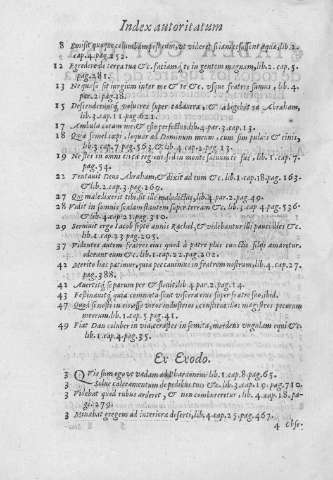 Index autoritatum
8 quoque columbam post eum, ut videret si iam cessassent aquæ, lib.2.
cap.4.pag.152.
12 Egredere de terra tua &c. faciamq; te in gentem magnam, lib.2.cap.5.
pag.281.
13 Ne quæso sit iurgium inter me & te &c. lib.4.
par.2.pag.18.
15 Descenderuntq; volucres super cadavera, & abigebat ea Abraham,
lib.3.cap.11.pag.621.
17 Ambula coram me & esto perfectus, lib.4.par.3.cap.13.
18 Quia semel cœpi, loquar ad Dominum meum, cum sim pulvis & cinis,
lib.3.cap.7.pag.563. & lib.4.cap.13.pag.
19 Ne stes in omni circa regione, sed in monte salvum te fac, lib.1.cap.7.
pag.54.
22 Tentavit Deus Abraham, & dixit ad eum &c. lib.1.cap.18.pag.163.
& lib.2.cap.3.pag.269.
27 Qui maledixerit tibi sit ille maledictus, lib.4.par.2.pag.49.
28 Vidit in somnis scalam stantem super terram &c. lib.3.cap.4.pag.536.
& lib.4.cap.21.pag.310.
29 Servivit ergo Iacob septē annis Rachel, & videbantur illi pauci dies &c.
lib.4.cap.23.pag.205.
37 Videntes autem fratres eius quod à patre plus cunctis filijs amaretur,
oderant eum &c. lib.1.cap.22.pag.202.
42 Merito hæc patimur, quia peccavimus in fratrem nostrum, lib.4.cap.27.
pag.388.
42 Avertitq; se parum per & flevit, lib.4.par.2.pag.14.
43 Festinavitq; quia commota sunt viscera eius super fratre suo, ibid.
47 Quod si nosti in eis esse viros industrios, constitue illos magistros pecorum
meorum, lib.1.cap.5.pag.41.
49 Fiat Dan coluber in via, cerastes in semita, mordens ungulam equi &c.
lib.1.cap.4.pag.35.
Ex Exodo.
3 Quis sum ego ut vadam ad Pharaonem lib.1.cap.8.pag.65.
3 Solve calceamentum de pedibus tuis &c. lib.3.cap.19.pag.710.
3 Videbat quod rubus arderet, & non combureretur, lib.4.cap.18.pa-
gi.279.
3 Minabat gregem ad interiora deserti, lib.4.cap.25.pag.467.
4 Obse-